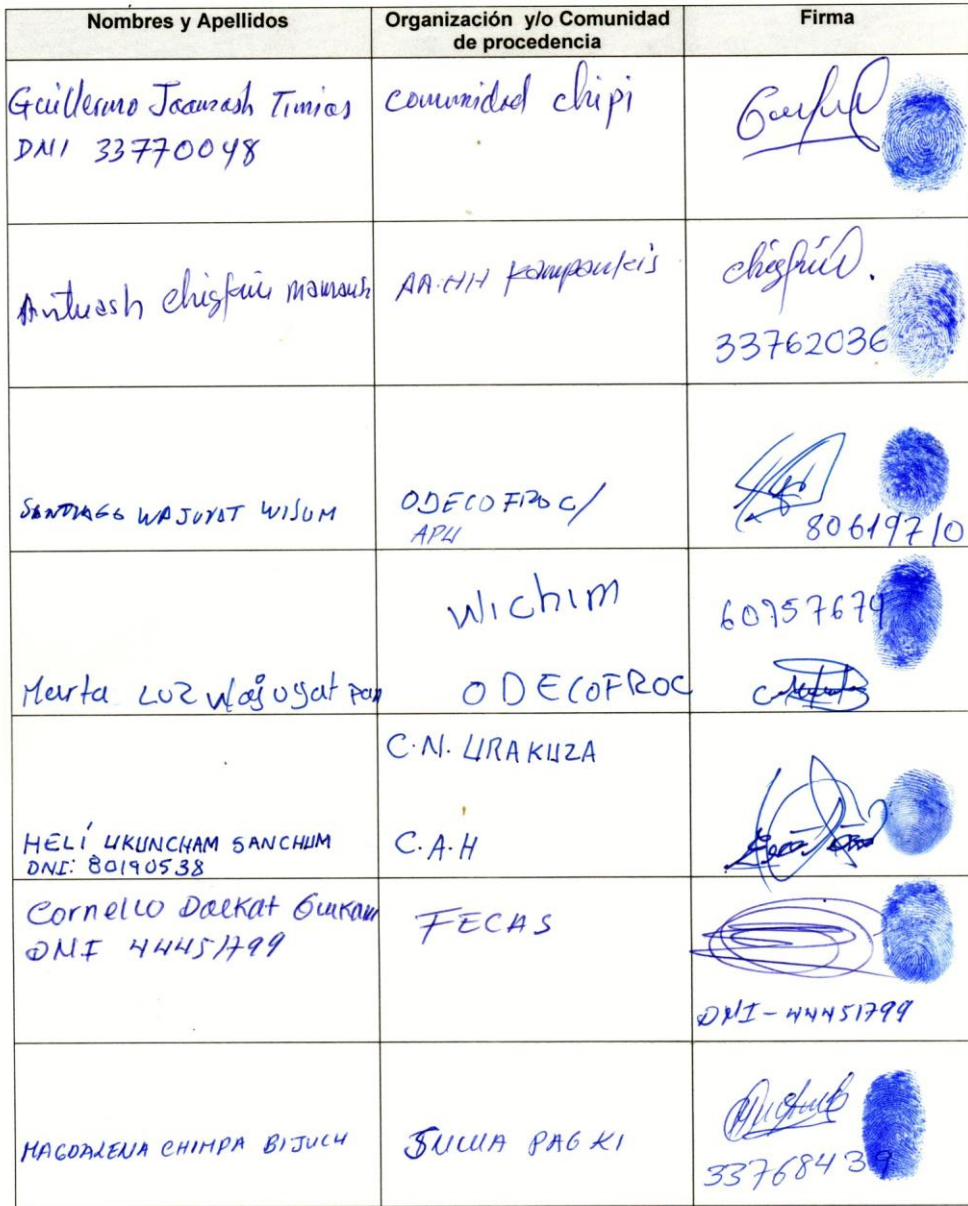 Nombres y Apellidos
Organización y/o Comunidad
de procedencia
Firma
Guillermo Jaamash Timias
DNI 33770048
comunidad chipi
Antuash chigkuii
AA.HH Kampankis
chigkuii.
33762036
SANTIAGO WAJUYAT WISUM
ODECOFROC/
APU
80619710
Marta LUZ Wajuyat Pan
Wichim
ODECOFROC
60957674
HELÍ UKUNCHAM SANCHUM
DNI: 80190538
C.N. URAKUZA
C.A.H
Cornelio Daekat
DNI 44451799
FECAS
DNI-44451799
MAGDALENA CHIMPA BIJUCH
PAGKI
33768439